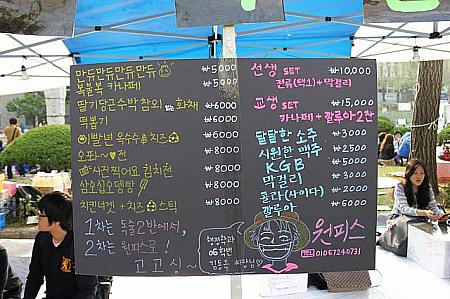 만듀만듀만듀만듀 ₩5,000
독불복 카나페 ₩5000
딸기당근수박 참외 화채 ₩6000
떡뽑기 ₩6000
이발년 옥수수 & 치즈 ₩8000
오파~♡전 ₩8000
사진찍어요, 김치전 ₩8000
삼오십오뎅탕 ₩8000
치킨너겟 + 치즈 스틱 ₩8000
1차는 독불2반에서,
2차는 원피스로!
고고싱~
선생 SET ₩10,000
전류(택1) + 막걸리
교생 SET ₩15,000
카나페 + 깔루아 2잔
달달한 소주 ₩3000
시원한 맥주 ₩2500
KGB ₩5000
막걸리 ₩3000
콜라(사이다) ₩2000
깔루아 ₩6000
행정학과
06학번
김동욱 싸장님♡
원피스
TEL 010 6724 0731